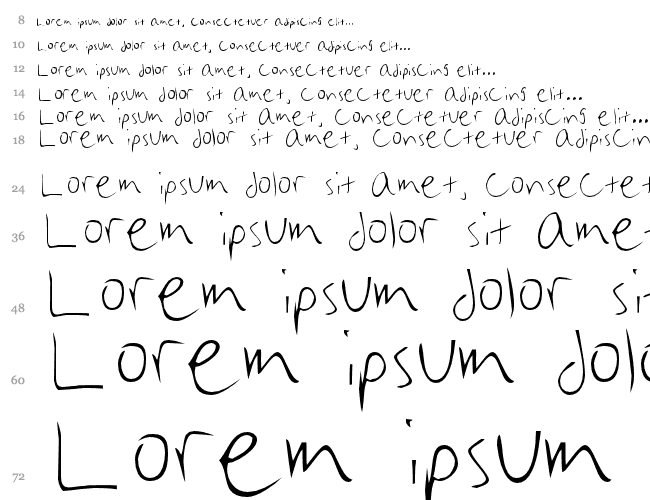 8 Lorem ipsum dolor sit amet, consectetuer adipiscing elit...
10 Lorem ipsum dolor sit amet, consectetuer adipiscing elit...
12 Lorem ipsum dolor sit amet, consectetuer adipiscing elit...
14 Lorem ipsum dolor sit amet, consectetuer adipiscing elit...
16 Lorem ipsum dolor sit amet, consectetuer adipiscing elit...
18 Lorem ipsum dolor sit amet, consectetuer adipiscin
24 Lorem ipsum dolor sit amet, consectet
36 Lorem ipsum dolor sit ame
48 Lorem ipsum dolor si
60 Lorem ipsum dolo
72 Lorem ipsum